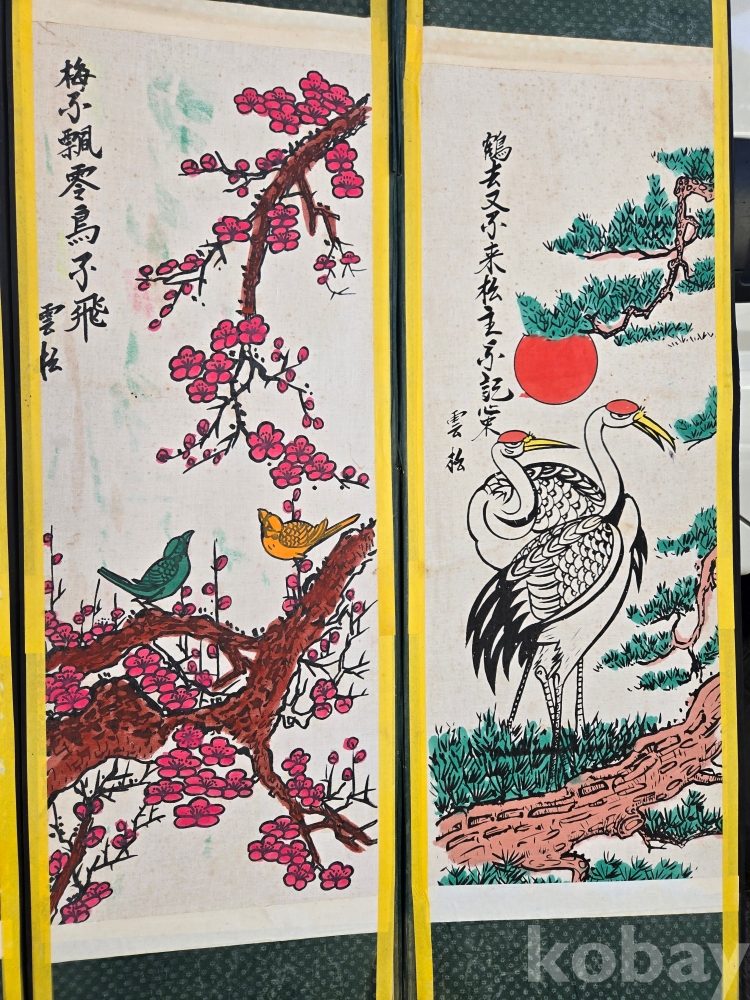 梅不飄零鳥不飛
雲松
鶴去又不来松主不記策
雲松
kobay